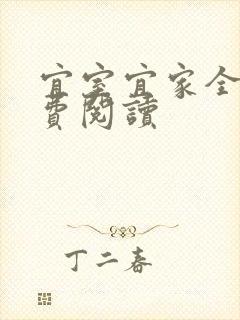 宜室宜家全
費閱讀
丁二春